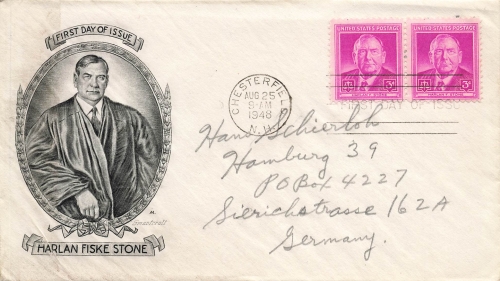 FIRST DAY OF ISSUE
UNITED STATES POSTAGE
UNITED STATES POSTAGE
HARLAN F. STONE
3¢
HARLAN F. STONE
3¢
CHESTERFIELD
AUG 25
9-AM
1948
N.H.
FIRST DAY OF ISSUE
Hans Schierloh
Hamburg 39
PO Box 4227
Sierichstrasse 162A
Germany.
HARLAN FISKE STONE